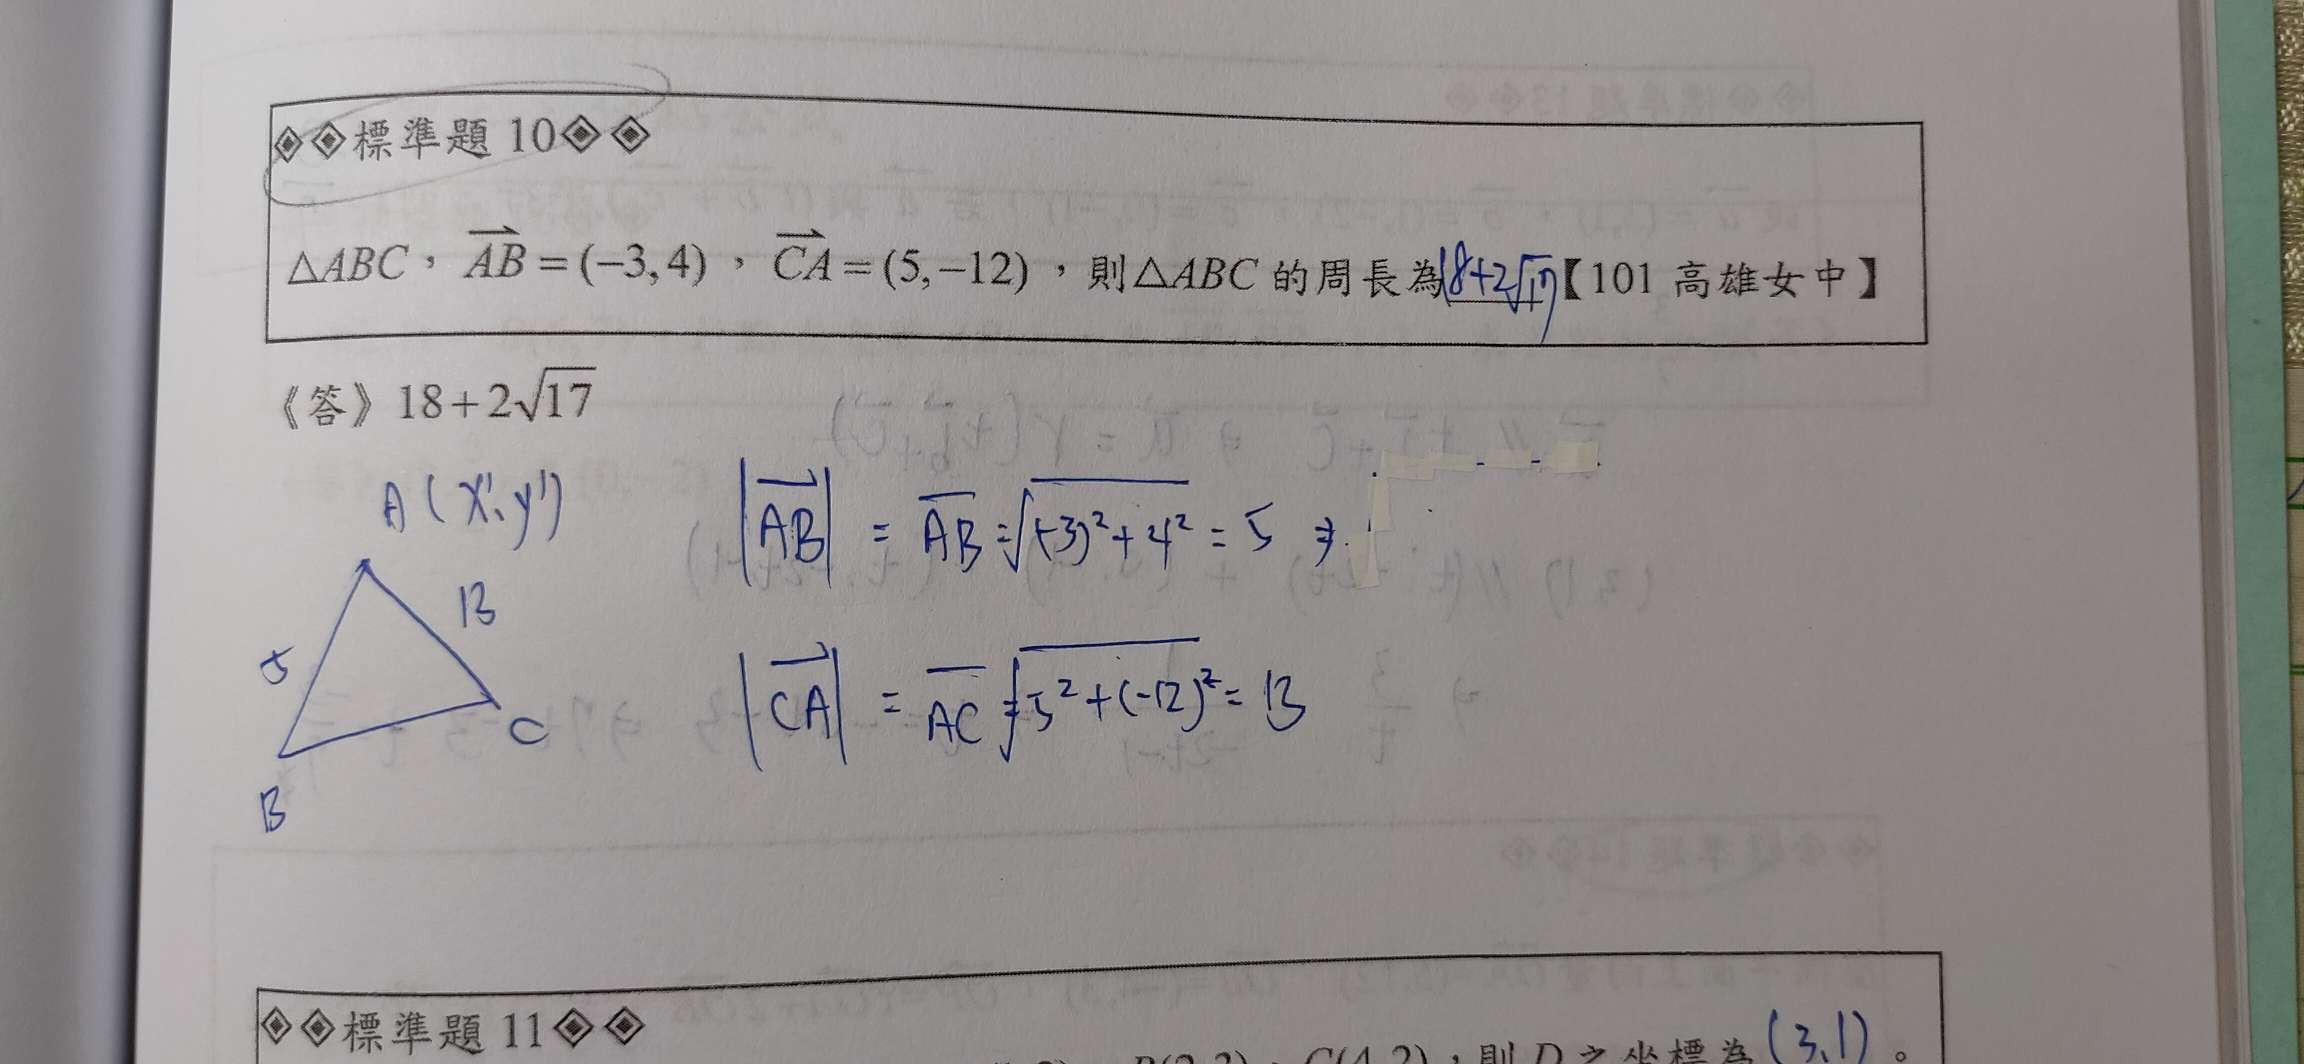 ◈◈標準題 10◈◈
△ABC，AB=(−3,4)，CA=(5,−12)，則△ABC 的周長為18+2√17【101 高雄女中】
《答》18+2√17
A(x',y')
|AB| = AB=√(-3)²+4² = 5 ⇒
13
5
|CA| = AC=√5²+(-12)² = 13
C
B
◈◈標準題 11◈◈
B(2,2)、C(4,2)，則D之坐標為(3,1)。